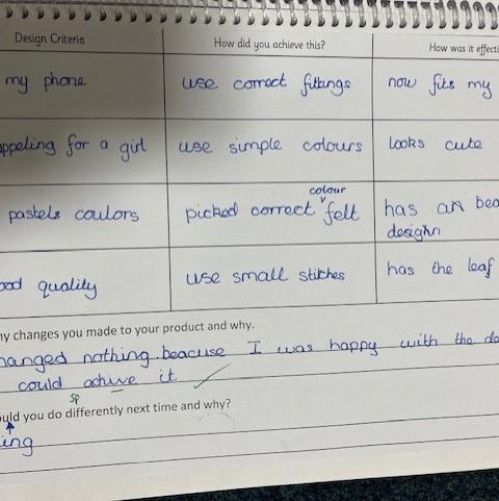 Design Criteria How did you achieve this? How was it
my phone use correct fittings now fits my
for a girl use simple colours looks cute
colour
pastels coulors picked correct felt has an
desighn
quality use small stitches has the leaf
changes you made to your product and why.
nothing beacuse I was happy with the
could achive it
sp
you do differently next time and why?